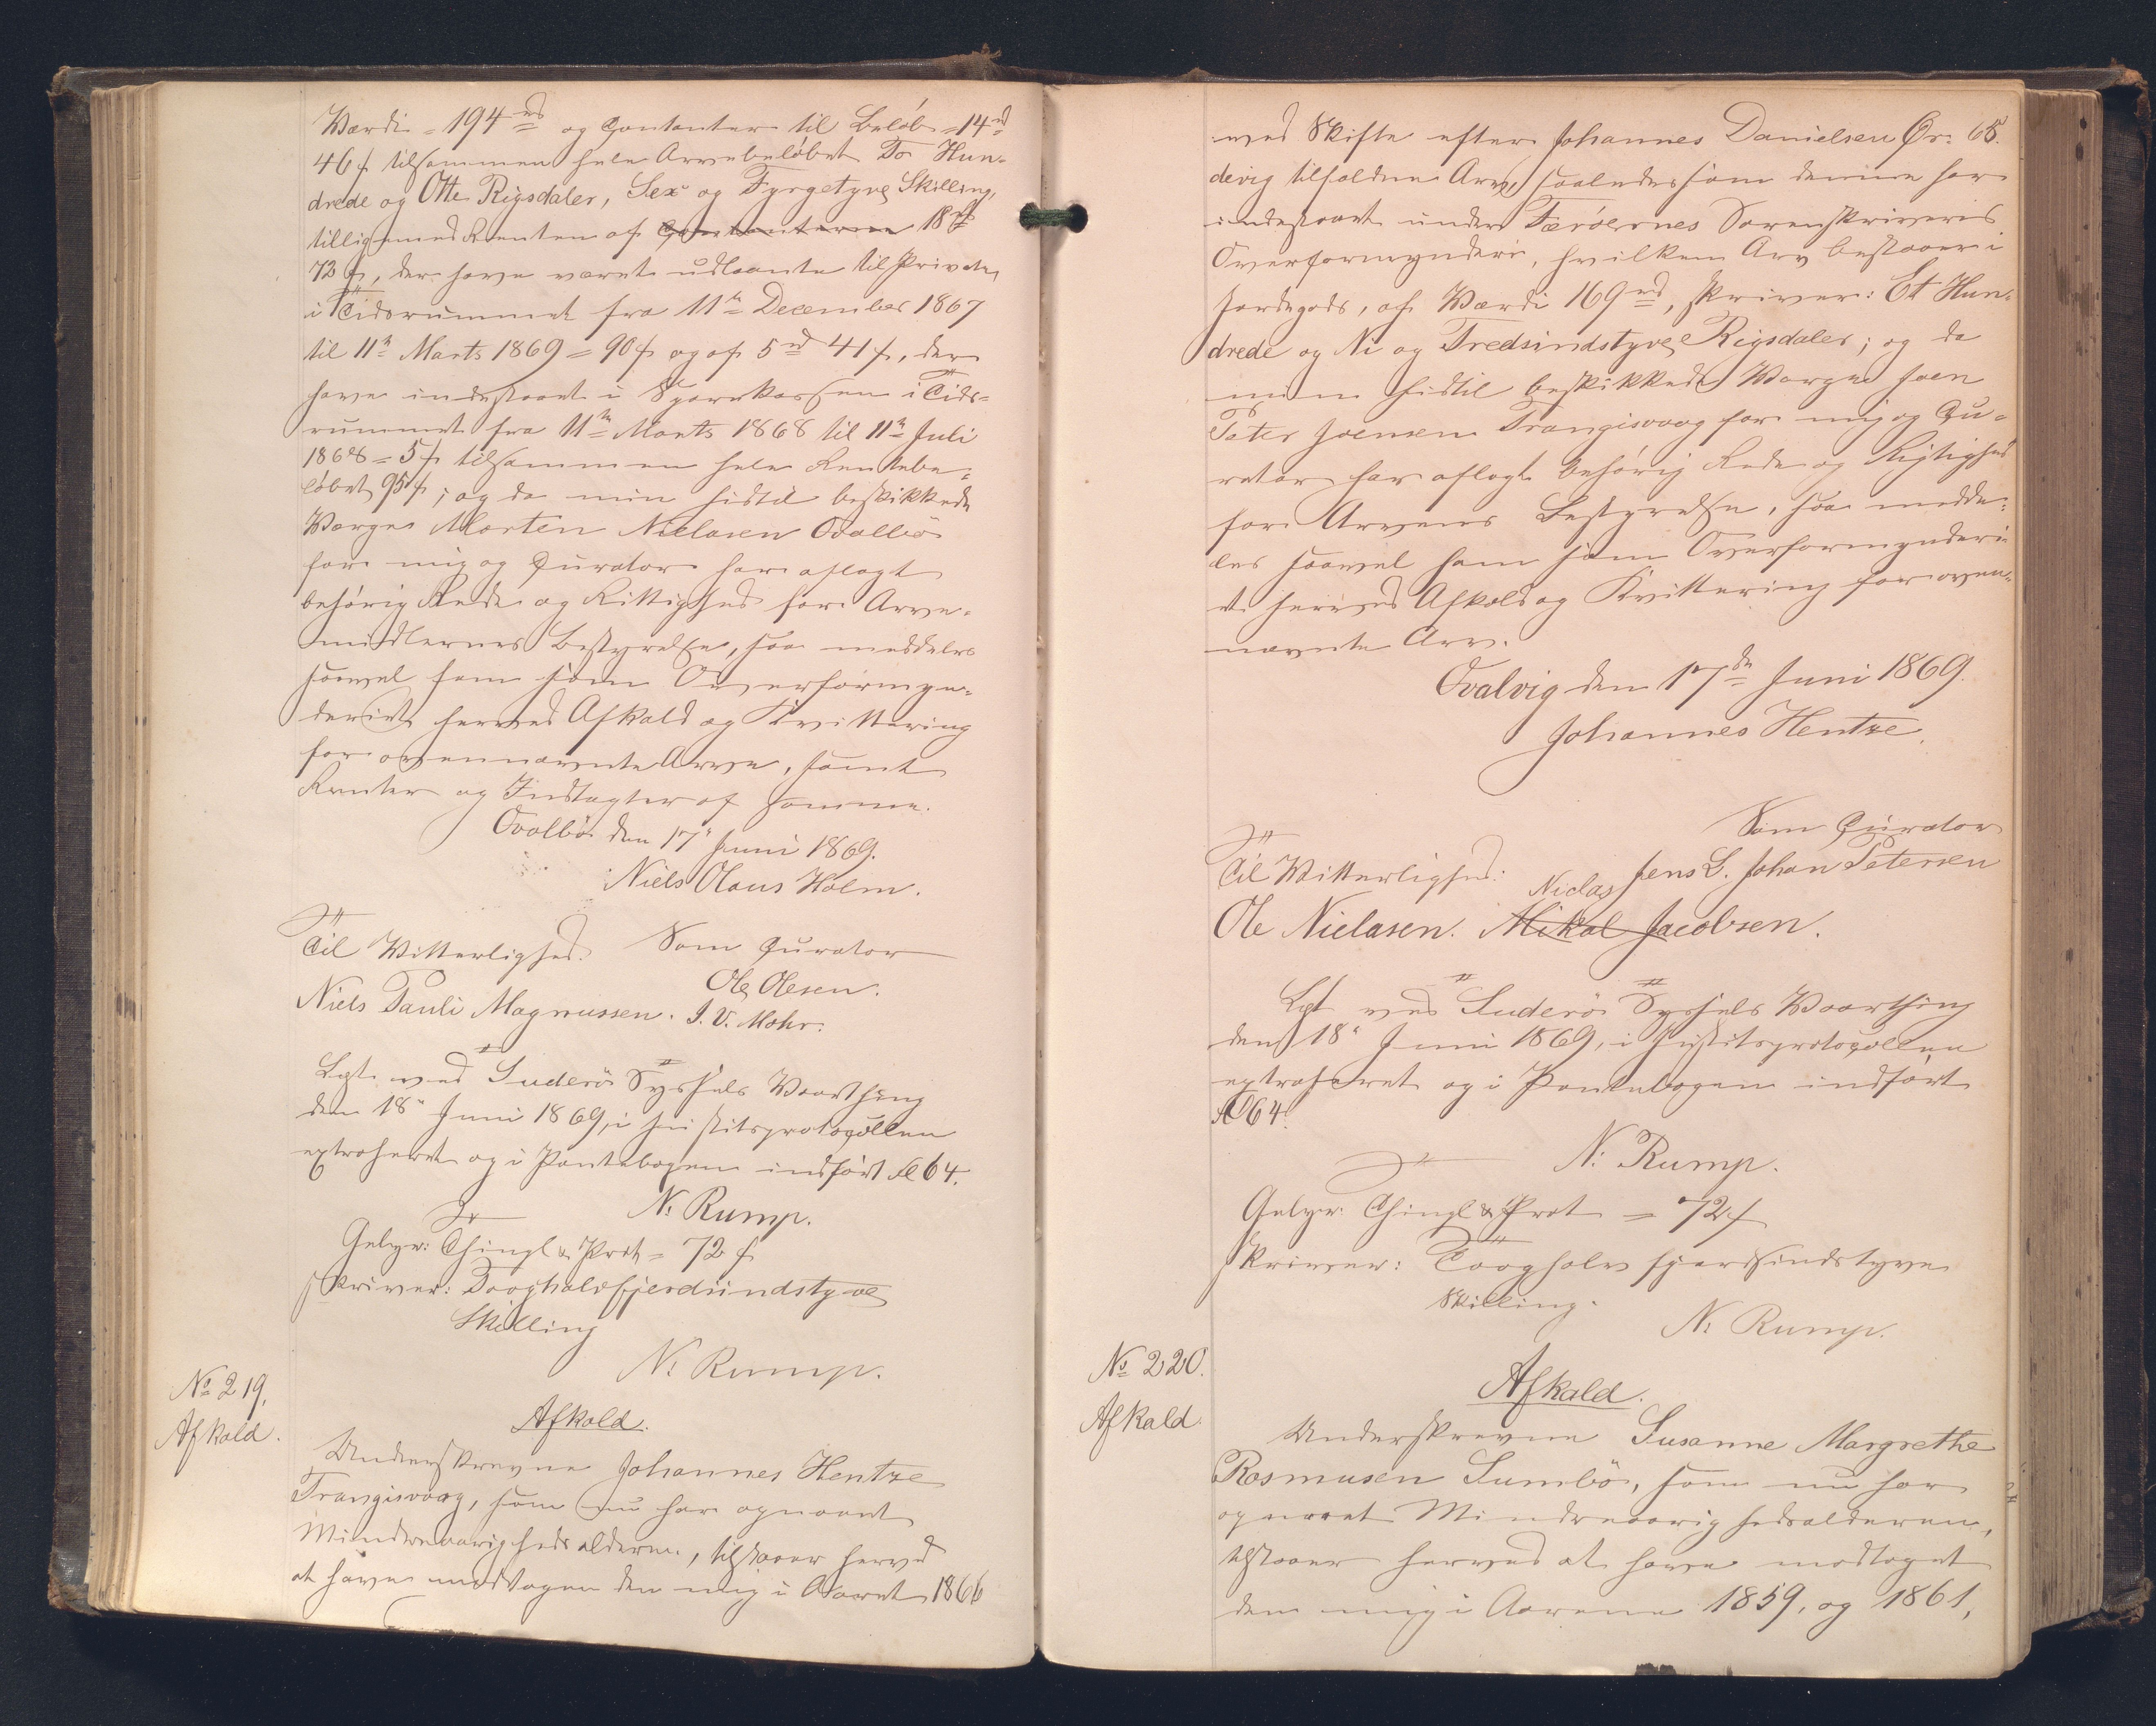 Værdi = 194 rd og Contanter til Beløb = 14 rd
46 ſ tilsammen hele Arvebeløbet To Hun-
drede og Otte Rigsdaler, Sex og Fyrgetyve Skilling,
tilligemed Renten af Contanterne 18 rd
72 ſ, der have været udlaante til Private,
i Tidsrummet fra 11te December 1867
til 11te Marts 1869 = 90 ſ og af 5 rd 41 ſ, der
have indestaaet i Sparekassen i Tids-
rummet fra 11te Marts 1868 til 11te Juli
1868 = 5 ſ tilsammen hele Rentebe-
løbet 95 ſ; og da min hidtil beskikkede
Værge Morten Nielasen Qvalbø
for mig og Curator har aflagt
behørig Rede og Rittighed for Arve-
midlernes Bestyrelse, saa meddeles
saavel ham som Overformyn-
deriet herved Afkald og Kvittering
for ovennævnte Arve, samt
Renter og Indtægter af samme.
Qvalbø den 17de Juni 1869.
Niels Olaus Holm.
Til Vitterlighed: Som Curator
Ole Olesen.
Niels Pauli Magnussen. J. V. Mohr.
Læst ved Suderø Syssels Vaarthing
den 18de Juni 1869, i Justitsprotocollen
extraheret og i Pantebogen indført Fol 64.
N. Rump.
Gebyr: Thingl & Prot = 72 ſ
skriver: Tooghalvfjerdsindstyve
Skilling
N. Rump.
No 219.
Afkald.
Afkald.
Underskrevne Johannes Hentze
Trangisvaag, som nu har opnaaet
Mindreaarighedsalderen, tilstaaer herved
at have modtagen den mig i Aaret 1866
ved Skifte efter Johannes Danielsen Ør-
devig tilfaldne Arv, saaledes som denne har
indestaaet under Færøernes Sorenskriveris
Overformynderi, hvilken Arv bestaaer i
Jordegods, af Værdi 169 rd, skriver: Et Hun-
drede og Ni og Tredsindstyve Rigsdaler; og da
min hidtil beskikkede Værge Joen
Peter Joensen Trangisvaag for mig og Cu-
rator har aflagt behørig Rede og Rigtighed
for Arvens Bestyrelse, saa medde-
les saavel ham som Overformynderi-
et herved Afkald og Kvittering for oven-
nævnte Arv.
Qvalvig den 17de Juni 1869.
Johannes Hentze.
Som Curator
Til Vitterlighed: Jens L. Johan Petersen
Niclas
Ole Nielasen. Mikal Jacobsen.
Læst ved Suderø Syssels Vaarthing
den 18de Juni 1869, i Justitsprotocollen
extraheret og i Pantebogen indført
Fol 64.
N. Rump.
Gebyr: Thingl & Prot = 72 ſ
skriver: Tooghalvfjerdsindstyve
Skilling.
N. Rump.
No 220.
Afkald.
Afkald.
Underskrevne Susanne Margrethe
Rasmusen Sumbø, som nu har
opnaaet Mindreaarighedsalderen,
tilstaaer herved at have modtaget
den mig i Aarene 1859, og 1861,